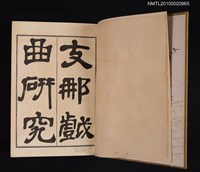 NMTL20100020965
支那戲
曲研究